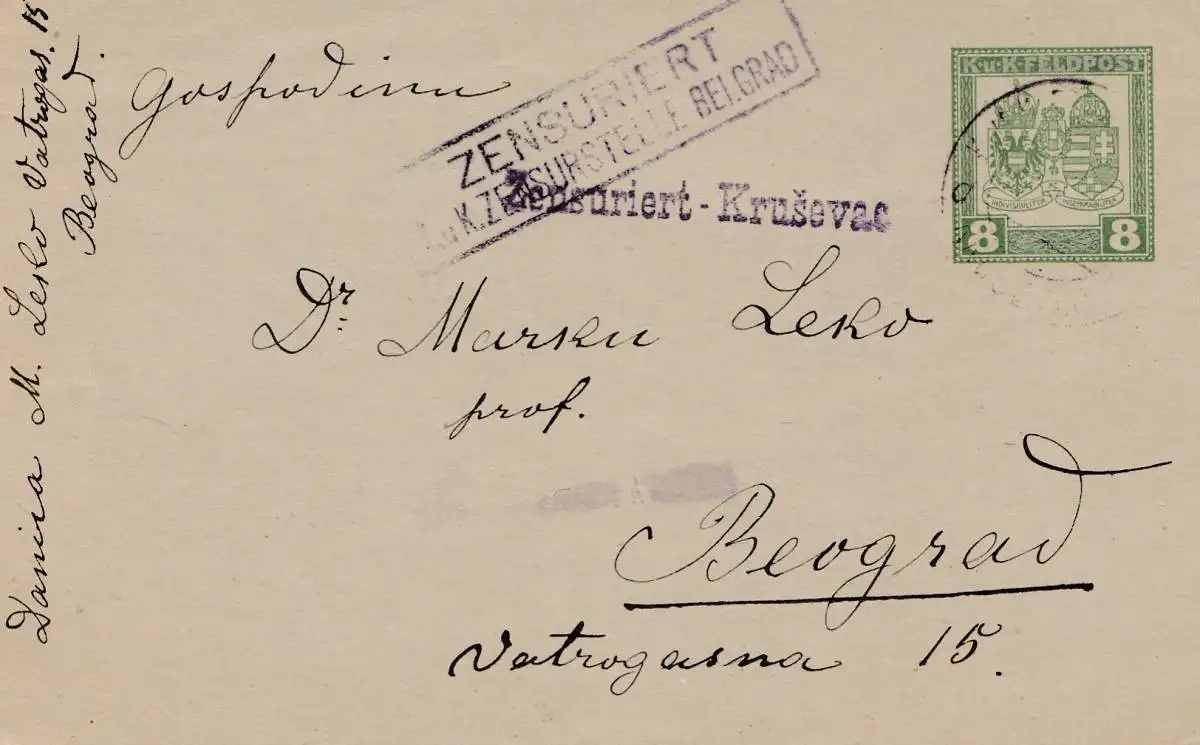 Danica M. Leko Vatrogas. 15
Beograd.
Gospodinu
ZENSURIERT
K.u.K. ZENSURSTELLE BELGRAD
Zensuriert - Kruševac
K.u.K. FELDPOST
INDIVISIBILITER
INSEPARABILITER
8 8
Dr. Marku Leko
prof.
Beograd
Vatrogasna 15.